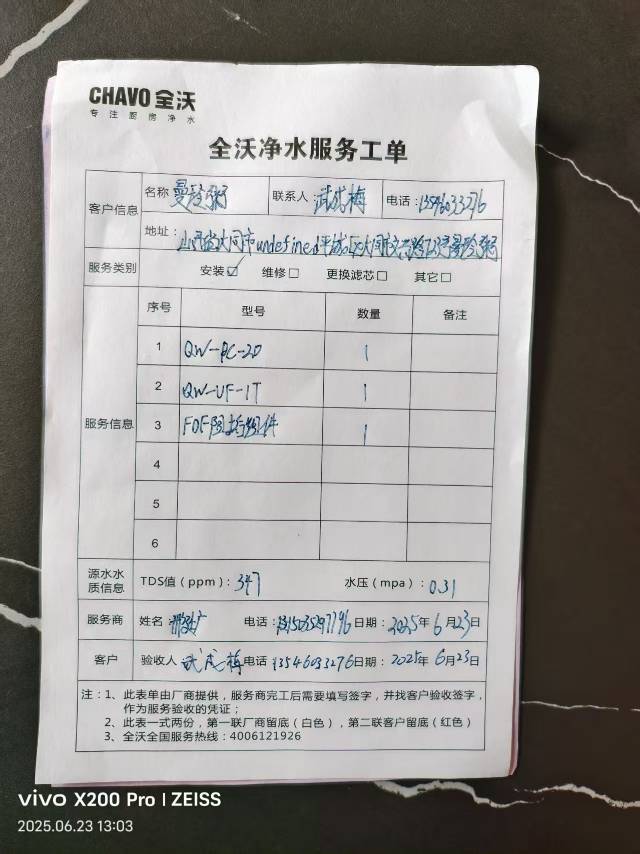 CHAVO 全沃
专注厨房净水
全沃净水服务工单
客户信息
名称 曼玲粥
联系人 武成梅
电话: 13546033276
地址: 山西省大同市undefined平城区大同
服务类别 安装☑ 维修□ 更换滤芯□ 其它□
服务信息
序号 型号 数量 备注
1 QW-PC-20 1
2 QW-UF-1T 1
3 FOF阻垢组件 1
4
5
6
源水水质信息 TDS值(ppm): 347 水压(mpa): 0.31
服务商 姓名: 电话: 日期: 2025年6月23日
客户 验收人 武成梅 电话 13546033276 日期: 2025年6月23日
注:1、此表单由厂商提供,服务商完工后需要填写签字,并找客户验收签字,
作为服务验收的凭证;
2、此表一式两份,第一联厂商留底(白色),第二联客户留底(红色)
3、全沃全国服务热线:4006121926
vivo X200 Pro | ZEISS
2025.06.23 13:03